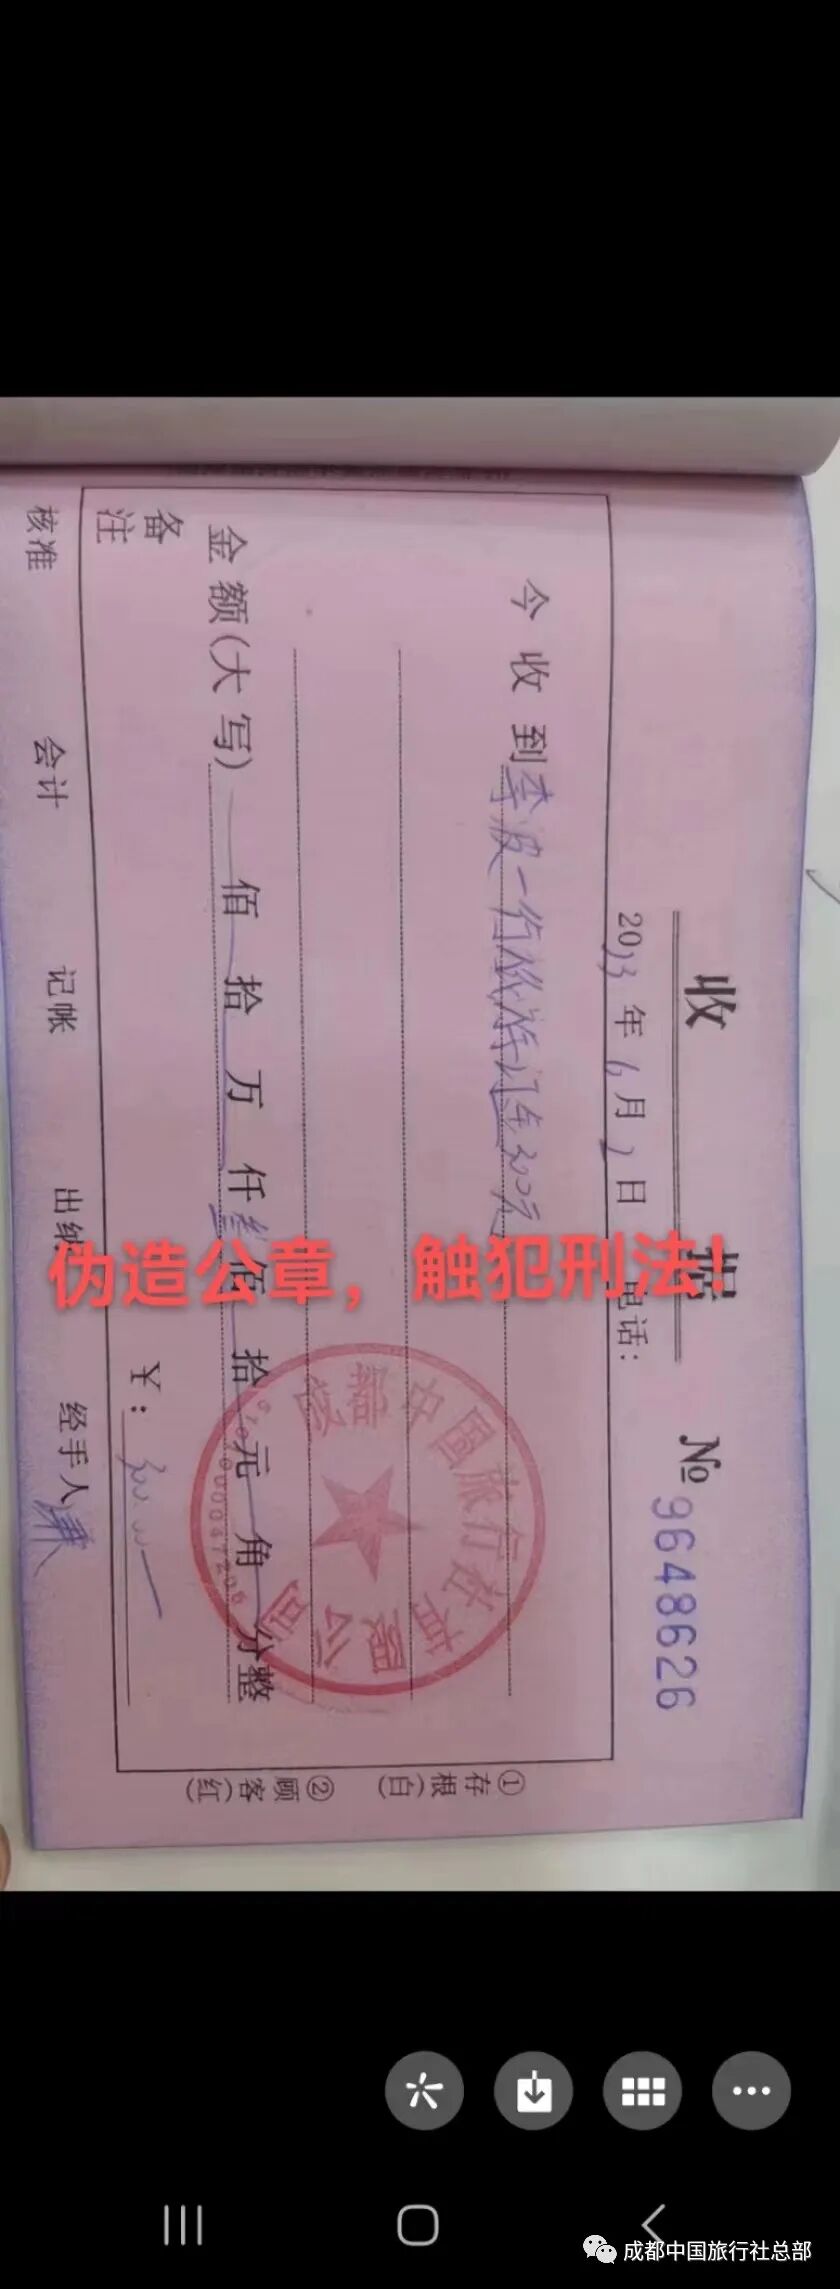 收据
№ 9648626
2023年6月2日
电话:
今收到李波一行旅游订金300元
金额(大写) 佰 拾 万 仟 叁佰 拾 元 角 分整
¥:
备注
核准 会计 记帐 出纳 经手人
①存根(白) ②顾客(红)
成都中国旅行社有限公司
伪造公章，触犯刑法！
成都中国旅行社总部